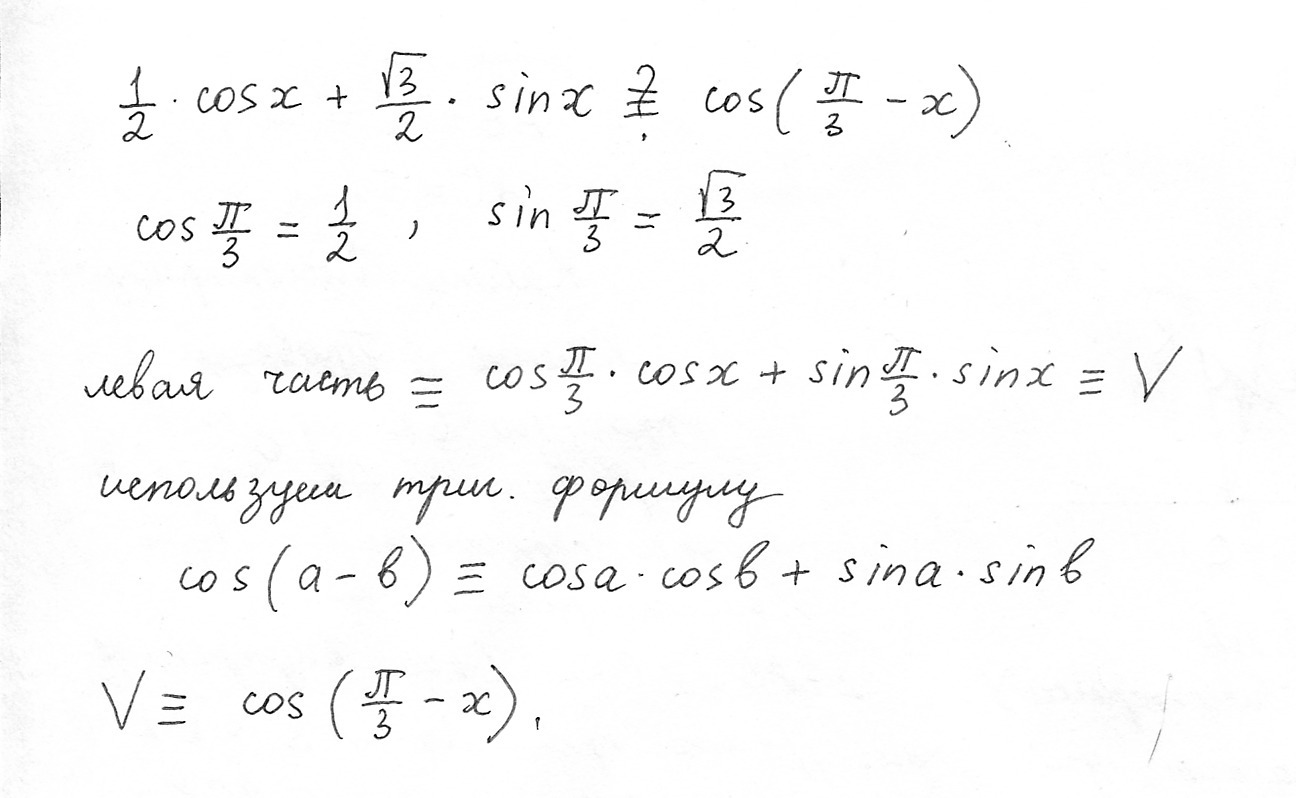 1/2 · cosx + √3/2 · sinx ≟ cos(π/3 − x)
cos π/3 = 1/2 , sin π/3 = √3/2
левая часть ≡ cos π/3 · cosx + sin π/3 · sinx ≡ V
используем триг. формулу
cos(a − b) ≡ cosa · cosb + sina · sinb
V ≡ cos(π/3 − x).